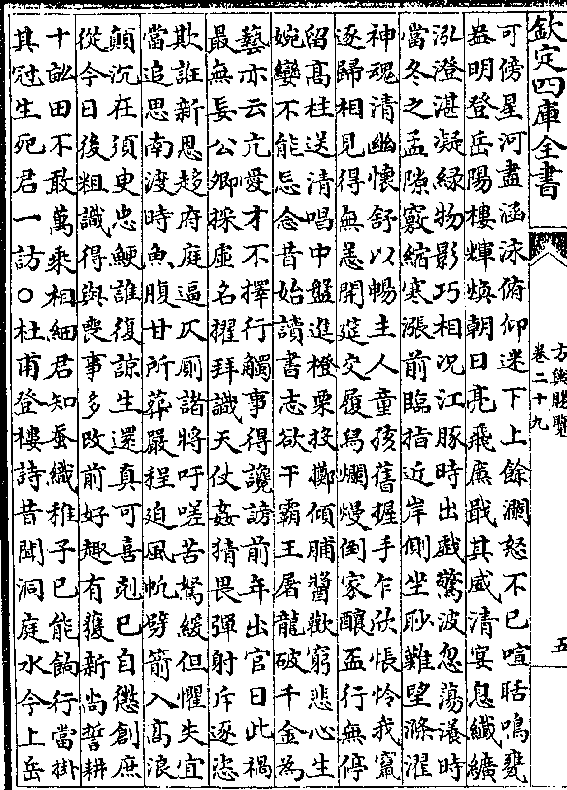 欽定四庫全書
可傍星河盡涵泳俯仰迷下上餘瀾怒不已喧聒鳴甕
盎明登岳陽樓輝煥朝日亮飛廉戢其威清宴息纖纊
泓澄湛凝緑物影巧相況江豚時出戲驚波忽蕩瀁時
當冬之孟隙竅縮寒漲前臨指近岸側坐眇難望滌濯
神魂清幽懷舒以暢主人童孩舊握手乍欣悵怜我竄
逐歸相見得無恙開筵交履舄爛熳倒家釀盃行無停
留高柱送清唱中盤進橙栗投擲傾脯醬歡窮悲心生
婉孌不能忘念昔始讀書志欲干霸王屠龍破千金為
藝亦云亢愛才不擇行觸事得讒謗前年出官日此禍
最無妄公卿採虛名擢拜識天仗姦猜畏彈射斥逐恣
欺誑新恩趍府庭逼仄厠諸將吁嗟苦駑緩但懼失宜
當追思南渡時魚腹甘所葬嚴程迫風帆劈箭入高浪
顛沉在須臾忠鯁誰復諒生還真可喜剋已自懲創庶
從今日後粗識得與喪事多改前好趣有獲新尚誓耕
十畝田不敢萬乘相細君知蚕織稚子已能餉行當掛
其冠生死君一訪○杜甫登樓詩昔聞洞庭水今上岳
方輿勝覽
卷二十九
五